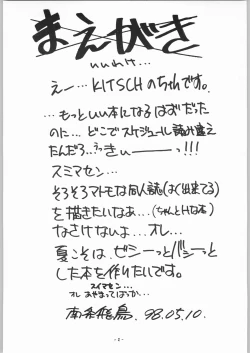 まえがき
いいわけ…
えー… KITSCHのちゃです。
…もっといい本になるはずだった
のに… どこでスケジュール読み違え
たんだろ…うっきぃーーっ!!!
スミマセン…
そろそろマトモな同人誌(はく出来てる)
を描きたいなぁ…(ちゃんとHな本)
なさけないよ…オレ…
夏こそは、ビシーっとバシーっと
した本を作りたいです。
スイマセン…
オレ あやまってばっか…
98.05.10.
-2-